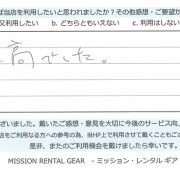 ば当店を利用したいと思われましたか？その他感想・ご要望が
又利用したい　b. どちらともいえない　c. 利用はしない
でした。
ざいました。戴いたご感想・意見を大切に今後のサービス向上
をご利用になる方への参考の為、当HP上で使用させて戴くこともござ
是非、またのご利用機会を戴けましたら幸いです。
MISSION RENTAL GEAR　- ミッション・レンタル ギア